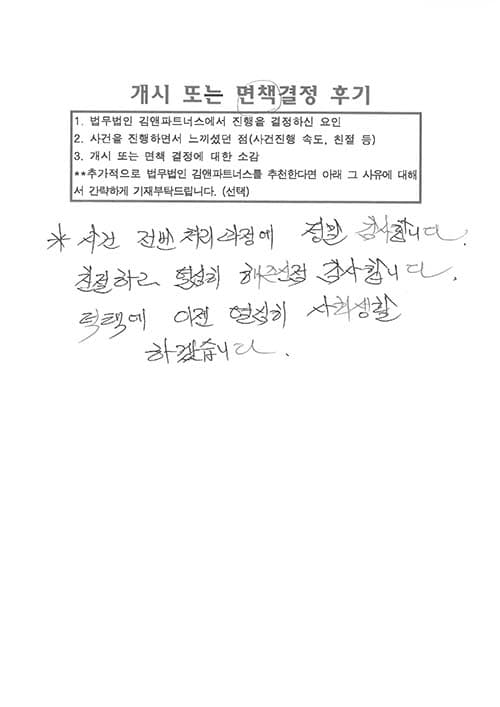 개시 또는 면책결정 후기
1. 법무법인 김앤파트너스에서 진행을 결정하신 요인
2. 사건을 진행하면서 느끼셨던 점(사건진행 속도, 친절 등)
3. 개시 또는 면책 결정에 대한 소감
**추가적으로 법무법인 김앤파트너스를 추천한다면 아래 그 사유에 대해
서 간략하게 기재부탁드립니다. (선택)
* 사건 전반 처리과정에 정말 감사합니다.
친절하고 열심히 해준점 감사합니다.
덕택에 이젠 열심히 사회생활
하겠습니다.